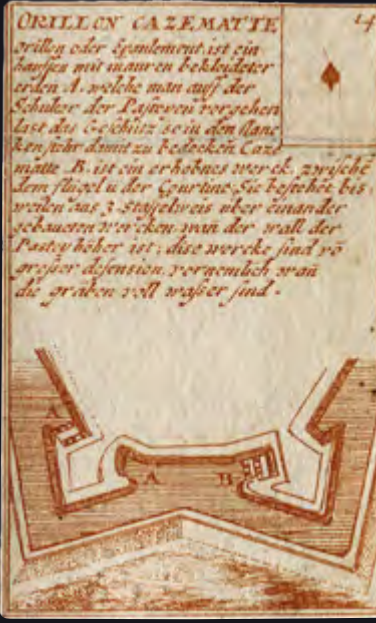 ORILLON CAZEMATTE
orillon oder Epaulement ist ein
hauffen mit mauren bekleideter
erden A. welche man auff der
Schulter der Pasteyen vorgehen
last das Geschütz so in den flanc
ken stehr damit zu bedecken Caze
matte B. ist ein erhobnes werck, zwische
dem flügel u der Courtine; Sie bestehet bis,
weilen aus 3. Staffelweis über einander
gebaueten wercken, wan der wall der
Pastey höher ist; dise wercke sind vō
grosser defension, vornemlich wañ
die gräben voll wasser sind.
A
A
B